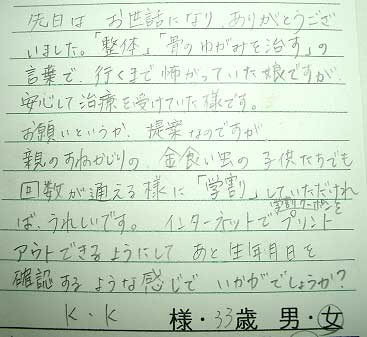 先日は お世話になり、ありがとうござ
いました。「整体」「骨のゆがみを治す」の
言葉で、行くまで怖がっていた娘ですが、
安心して治療を受けていた様です。
お願いというか、提案なのですが、
親のおねがじりの、金食い虫の子供たちでも
回数が通える様に「学割」していただけれ
ば、うれしいです。 インターネットで 学割クーポンを プリント
アウトできるようにして あと 生年月日を
確認するような感じで いかがでしょうか?
K・K 様・33歳 男・女